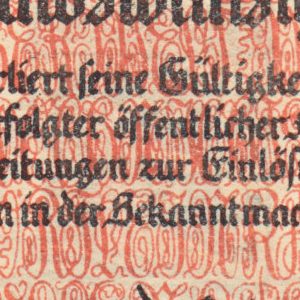 rliert seine Gültigke
rfolgter öffentlicher
eitungen zur Einlös
n in der Bekanntmac